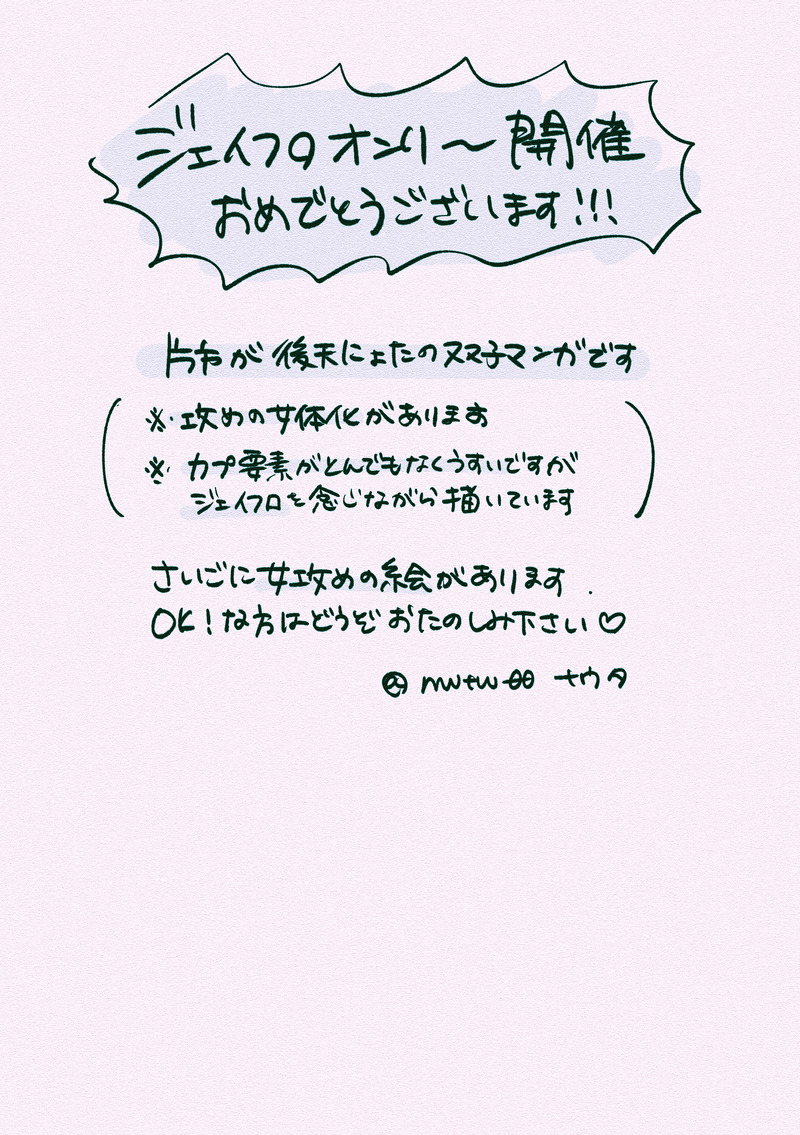 ジェイフロオンリ〜開催
おめでとうございます!!!
片方が後天にょたのヌヌ子マンガです
※攻めの女体化があります
※カプ要素がとんでもなくうすいですが
ジェイフロを念じながら描いています
さいごに女攻めの絵があります
OK!な方はどうぞおたのしみ下さい♡
ナウタ